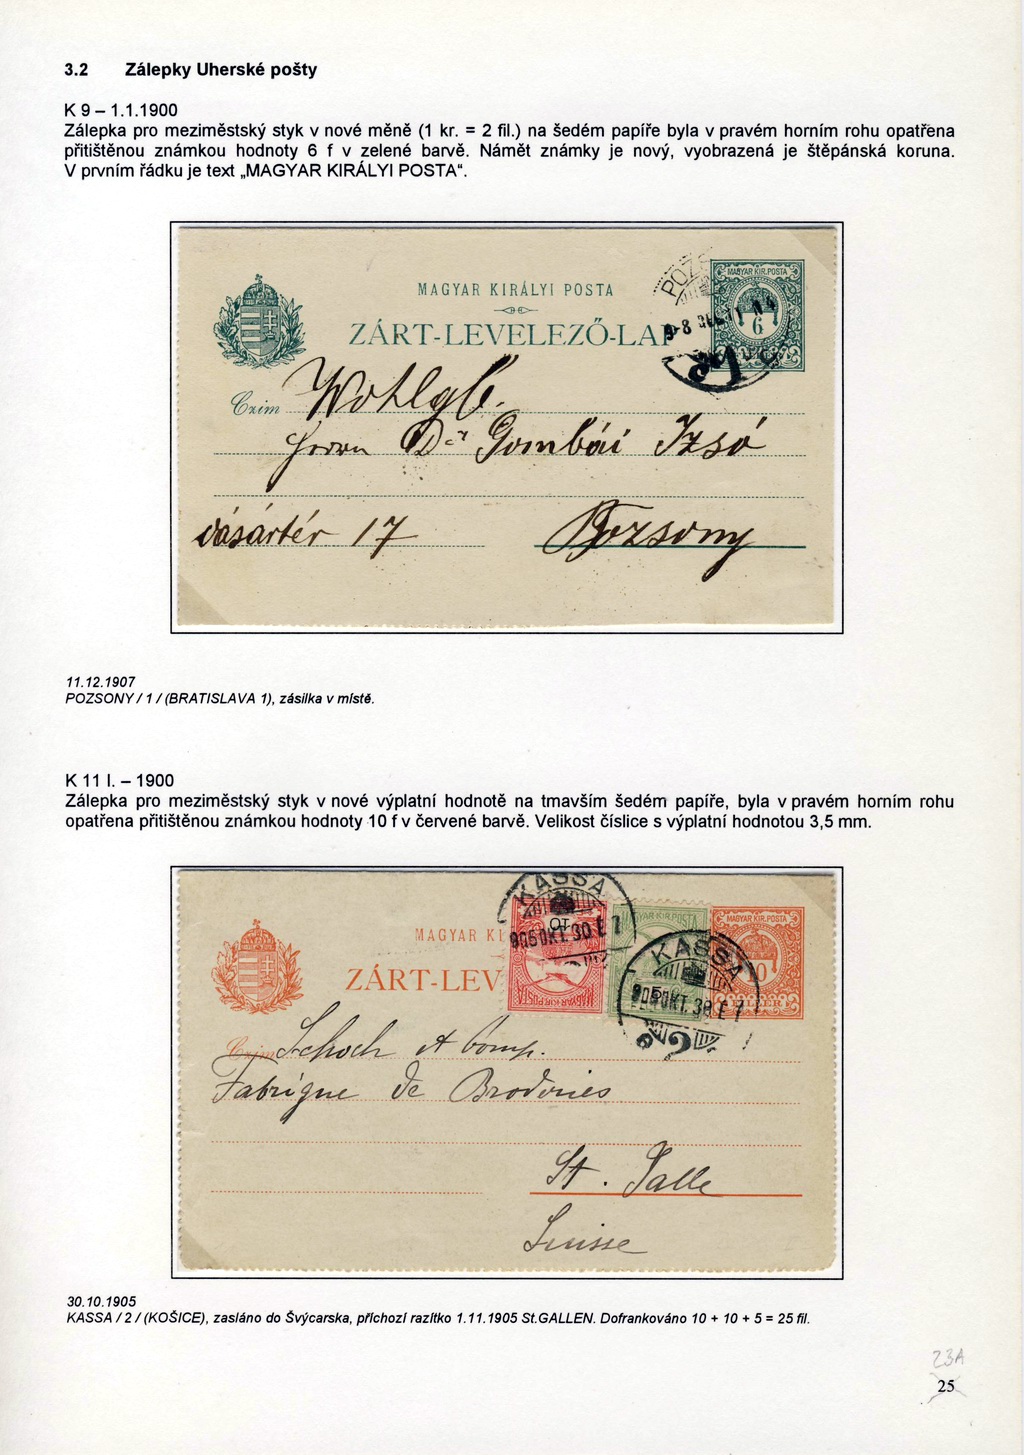 3.2 Zálepky Uherské pošty
K 9 – 1.1.1900
Zálepka pro meziměstský styk v nové měně (1 kr. = 2 fil.) na šedém papíře byla v pravém horním rohu opatřena
přitištěnou známkou hodnoty 6 f v zelené barvě. Námět známky je nový, vyobrazená je štěpánská koruna.
V prvním řádku je text „MAGYAR KIRÁLYI POSTA“.
MAGYAR KIR. POSTA
MAGYAR KIRÁLYI POSTA
6
ZÁRT-LEVELEZŐ-LAP
Czim Wohlgb.
Herrn Dr Gombái Izsó
vásártér 17 Pozsony
11.12.1907
POZSONY / 1 / (BRATISLAVA 1), zásilka v místě.
K 11 I. – 1900
Zálepka pro meziměstský styk v nové výplatní hodnotě na tmavším šedém papíře, byla v pravém horním rohu
opatřena přitištěnou známkou hodnoty 10 f v červené barvě. Velikost číslice s výplatní hodnotou 3,5 mm.
KASSA
905 OKT. 30 E 7
MAGYAR KIR. POSTA
MAGYAR KIR. POSTA
MAGYAR KIR. POSTA
MAGYAR KI
KASSA
10
905 OKT. 30 E 7
ZÁRT-LEV
2
Czim Schoch et Comp.
Fabrique de Broderies
St. Galle
Suisse
30.10.1905
KASSA / 2 / (KOŠICE), zasláno do Švýcarska, příchozí razítko 1.11.1905 St.GALLEN. Dofrankováno 10 + 10 + 5 = 25 fil.
23A
25